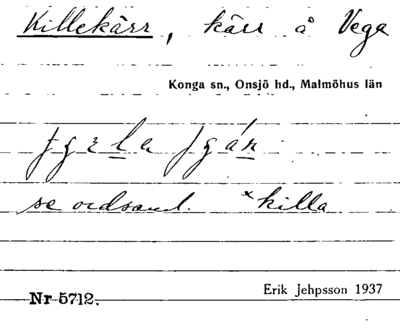 Killekärr, kärr å Vega
Konga sn., Onsjö hd., Malmöhus län
se ordsaml. *killa
Nr 5712.
Erik Jehpsson 1937